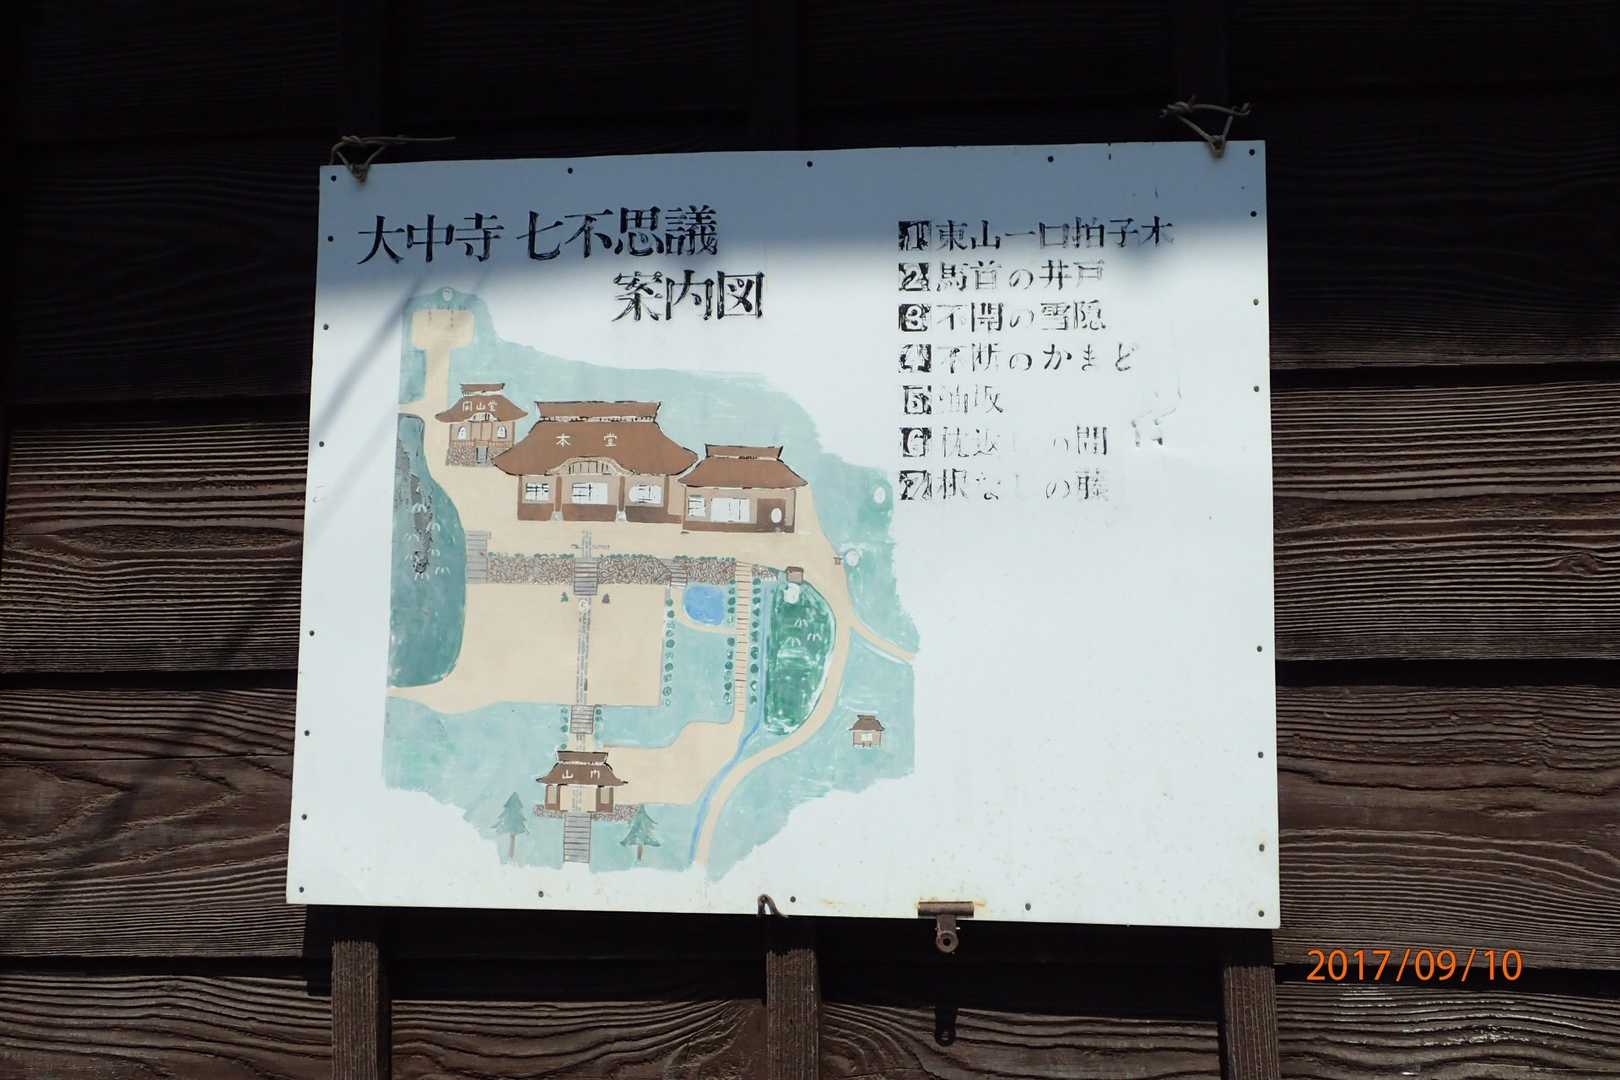 大中寺 七不思議
案内図
1 東山一口拍子木
2 馬首の井戸
3 不開の雪隠
4 不断のかまど
5 油坂
6 枕返しの間
7 根なしの藤
開山堂
本堂
山門
2017/09/10